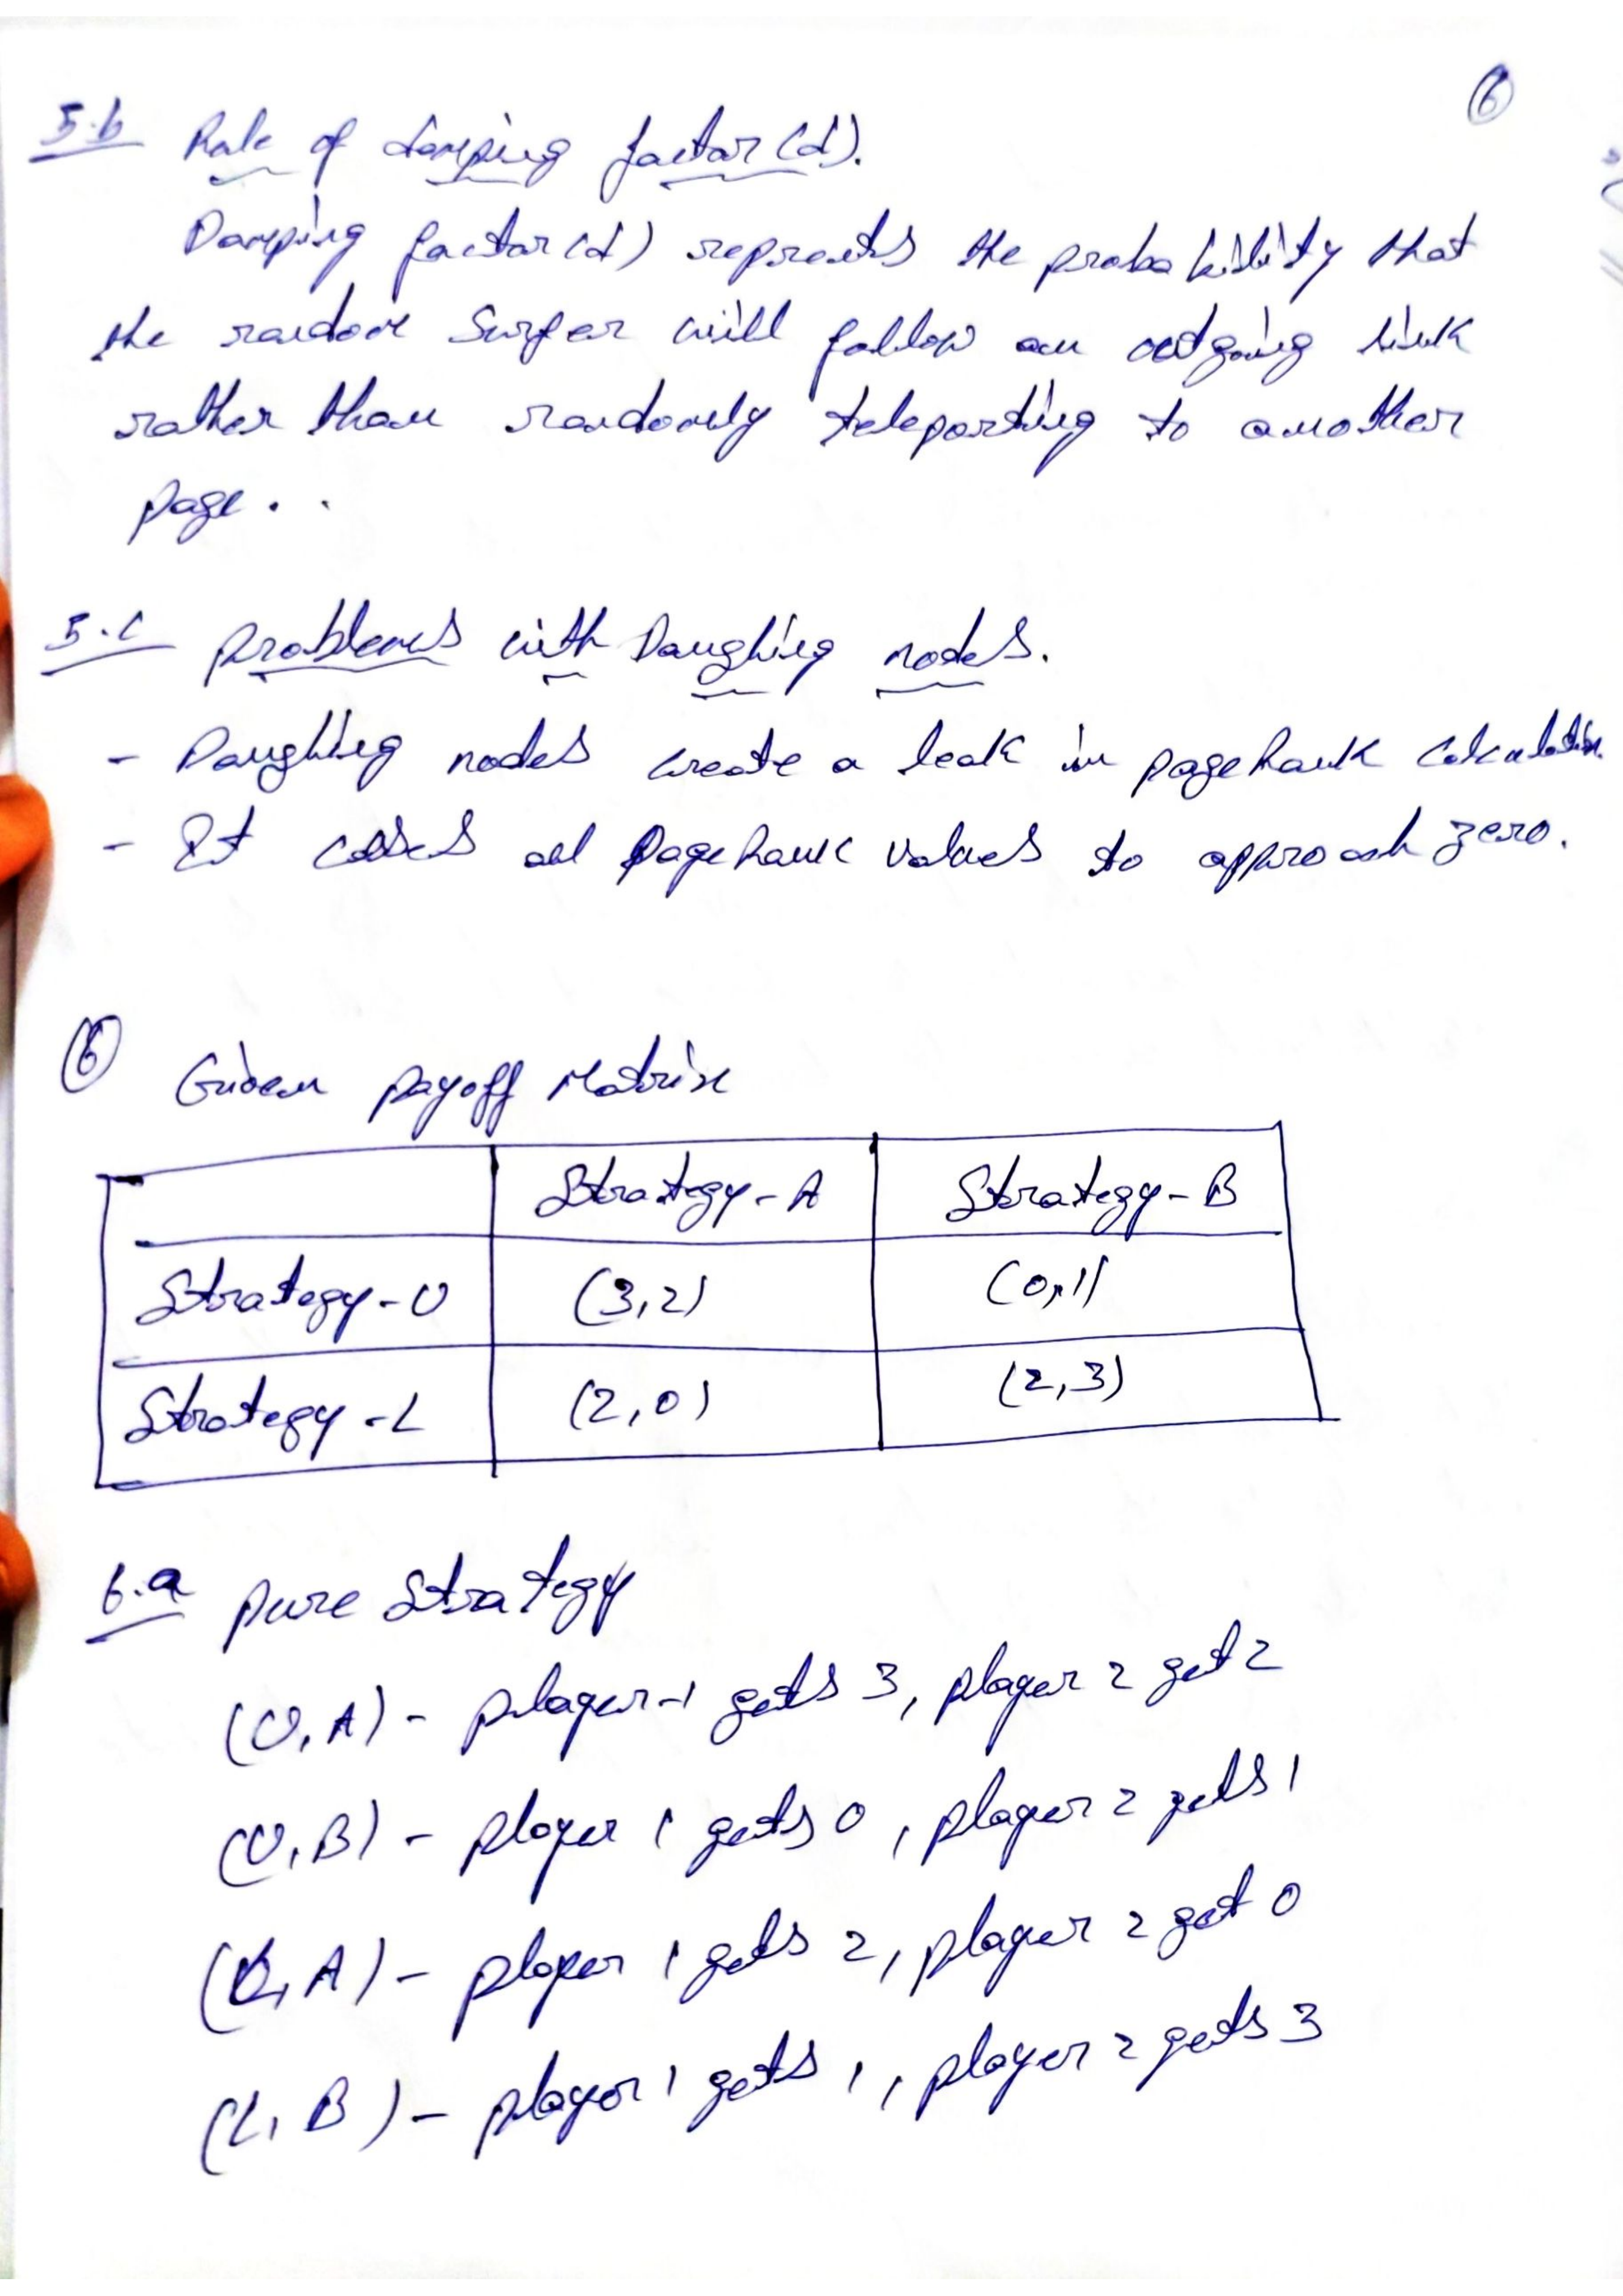 6
5.b Role of damping factor (d).
Damping factor (d) represents the probability that
the random Surfer will follow an outgoing link
rather than randomly teleporting to another
page . .
5.c problems with Dangling nodes.
- Dangling nodes create a leak in pageRank calculation.
- It causes all PageRank values to approach zero.
6 Given payoff Matrix
Strategy-A Strategy-B
Strategy-U (3,2) (0,1)
Strategy-L (2,0) (2,3)
6.a pure Strategy
(U,A) - player-1 gets 3, player 2 get 2
(U,B) - player 1 gets 0, player 2 gets 1
(L,A) - player 1 gets 2, player 2 get 0
(L,B) - player 1 gets 1, player 2 gets 3